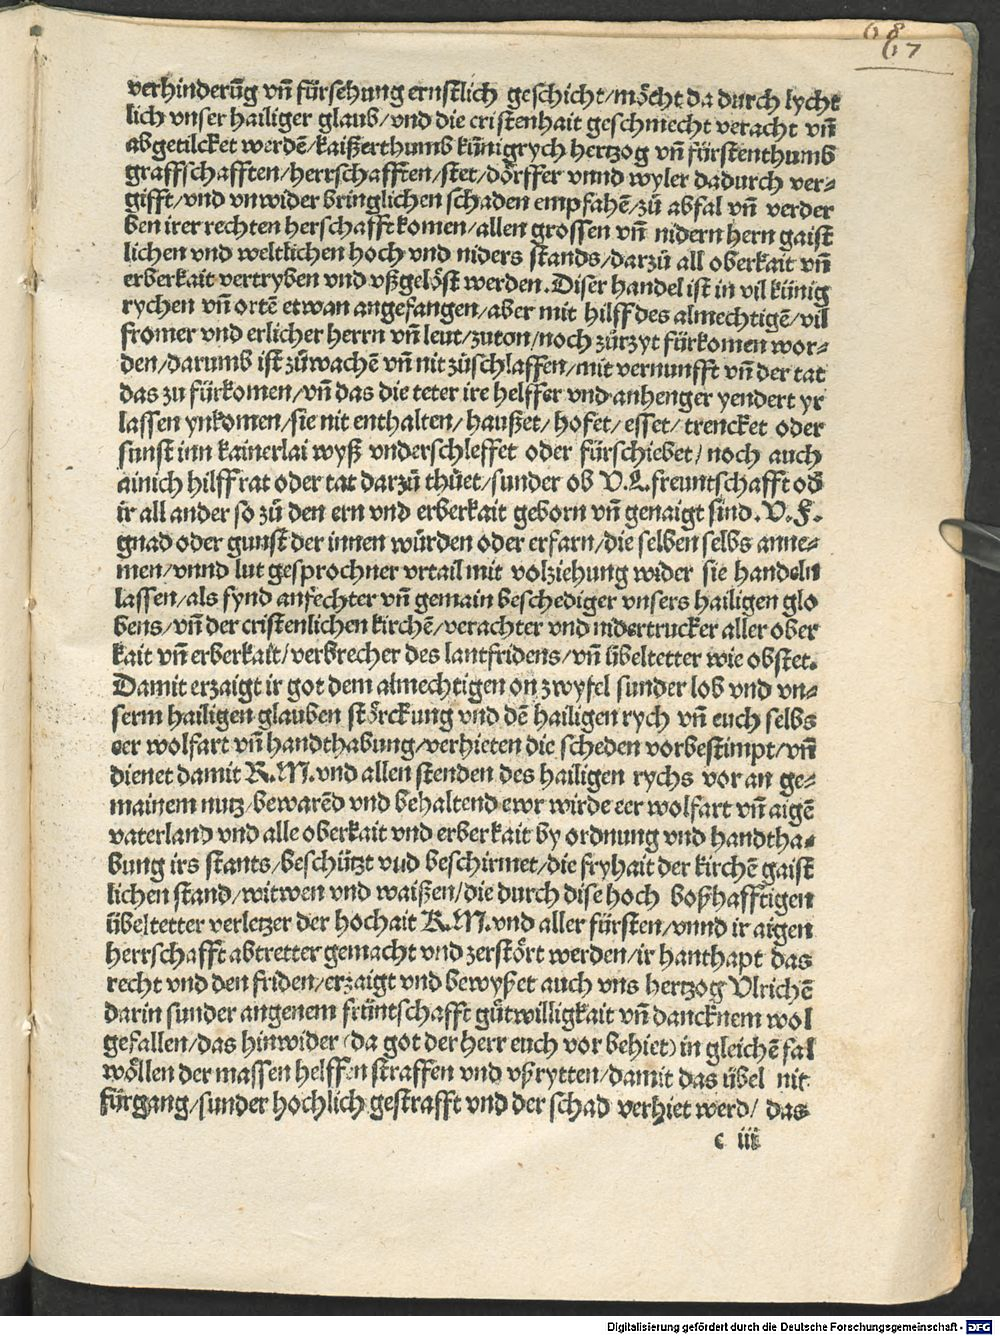 68
67
verhinderūg vn̄ fürsehung ernstlich geschicht/möcht da durch lycht
lich vnser hailiger glaub/vnd die cristenhait geschmecht veracht vn̄
abgetilcket werdē/kaißerthumb künigrych hertzog vn̄ fürstenthumb
graffschafften/herrschafften/stet/dörffer vnnd wyler dadurch ver-
gifft/vnd vnwider bringlichen schaden empfahē/zů abfal vn̄ verder
ben irer rechten herschafft komen/allen grossen vn̄ nidern hern gaist
lichen vnd weltlichen hoch vnd niders stands/darzů all oberkait vn̄
erberkait vertryben vnd vßgelöst werden. Diser handel ist in vil künig
rychen vn̄ ortē etwan angefangen/aber mit hilff des almechtigē/vil
fromer vnd erlicher herrn vn̄ leut/zuton/noch zůrzyt fürkomen wor-
den/darumb ist zůwachē vn̄ nit zůschlaffen/mit vernunfft vn̄ der tat
das zu fürkomen/vn̄ das die teter ire helffer vnd anhenger yendert yr
lassen ynkomen/sie nit enthalten/haußet/hofet/esset/trencket oder
sunst inn kainerlai wyß vnderschleffet oder fürschiebet/noch auch
ainich hilff rat oder tat darzů thüet/sunder ob V.L. freuntschafft ob
ir all ander so zů den ern vnd erberkait geborn vn̄ genaigt sind. V.F.
gnad oder gunst der innen würden oder erfarn/die selben selbs anne-
men/vnnd lut gesprochner vrtail mit volziehung wider sie handeln
lassen/als fynd anfechter vn̄ gemain beschediger vnsers hailigen glo
bens/vn̄ der cristenlichen kirchē/verachter vnd nidertrucker aller ober
kait vn̄ erberkait/verbrecher des lantfridens/vn̄ übeltetter wie obstet.
Damit erzaigt ir got dem almechtigen on zwyfel sunder lob vnd vn-
serm hailigen glauben störckung vnd dē hailigen rych vn̄ euch selbs
eer wolfart vn̄ handthabung/verhieten die scheden vorbestimpt/vn̄
dienet damit K.M. vnd allen stenden des hailigen rychs vor an ge-
mainem nutz/bewarēd vnd behaltend ewr wirde eer wolfart vn̄ aigē
vaterland vnd alle oberkait vnd erberkait by ordnung vnd handtha-
bung irs stants/beschützt vnd beschirmet/die fryhait der kirchē gaist
lichen stand/witwen vnd waißen/die durch dise hoch boßhafftigen
übeltetter verletzer der hochait K.M. vnd aller fürsten/vnnd ir aigen
herrschafft abtretter gemacht vnd zerstört werden/ir hanthapt das
recht vnd den friden/erzaigt vnd bewyßet auch vns hertzog Vlrichē
darin sunder angenem früntschafft gůtwilligkait vn̄ dancknem wol
gefallen/das hinwider (da got der herr euch vor behiet) in gleichē fal
wöllen der massen helffen straffen vnd vßrytten/damit das übel nit
fürgang/sunder hochlich gestrafft vnd der schad verhiet werd/das
c iii
Digitalisierung gefördert durch die Deutsche Forschungsgemeinschaft - DFG